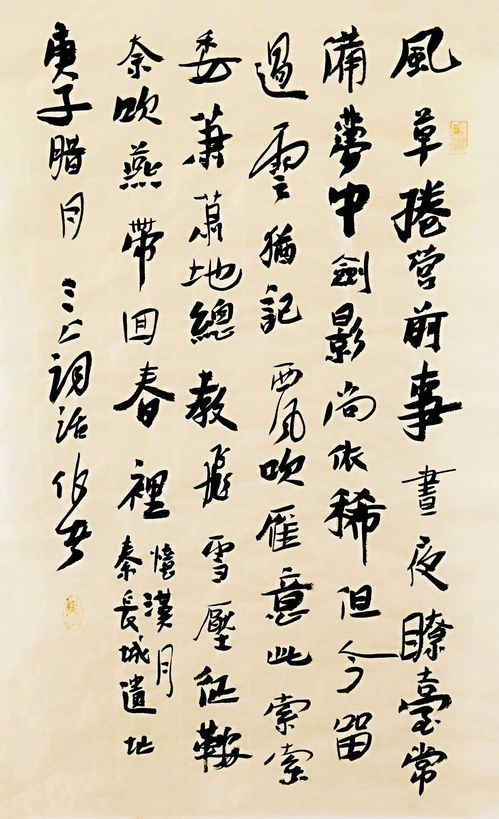 風草捲營前事晝夜瞭臺常
備夢中劍影尚依稀但今留
過雲猶記西風吹雁意此索索
委蕭蕭地總教飛雪壓征鞍
奈吹燕帶回春裡
憶漢月
秦長城遺址
庚子腊月三上詞話作书